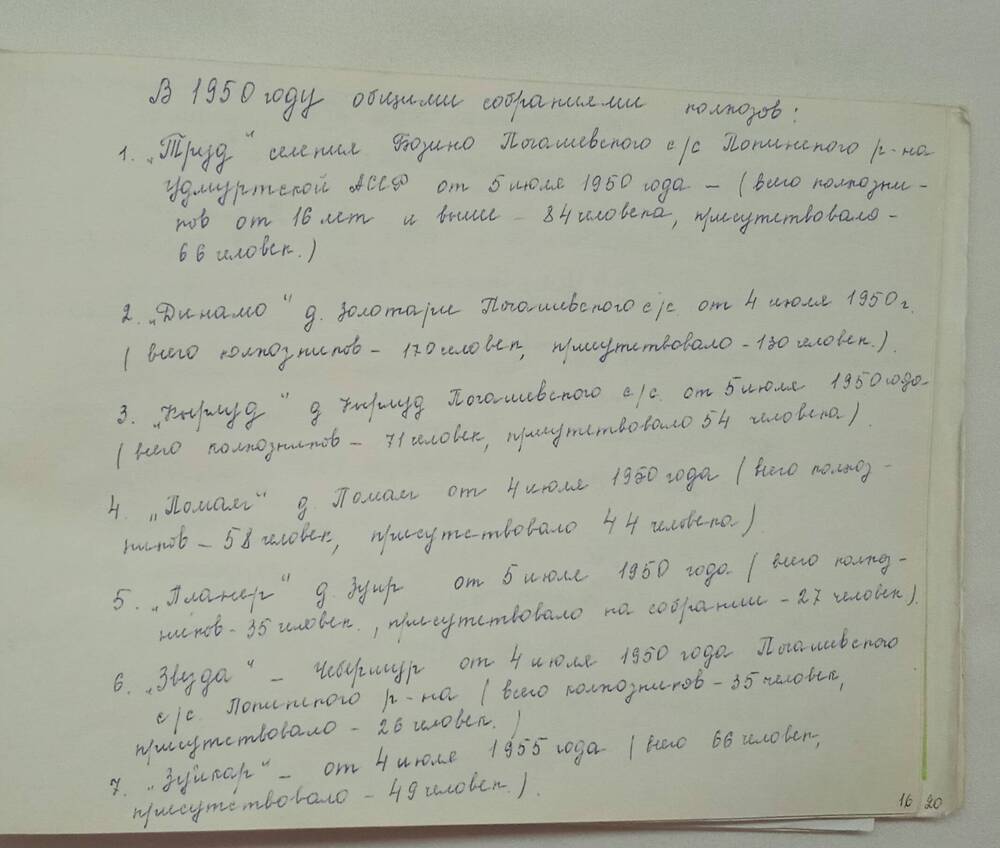 В 1950 году общими собраниями колхозов:
1. „Труд" селения Бозино Понинского р-на
Удмуртской АССР от 5 июля 1950 года – (всего колхозни-
ков от 16 лет и выше – 84 человека, присутствовало –
66 человек.)
2. „Динамо" д. Золотари с/с. от 4 июля 1950 г.
(всего колхозников – 170 человек, присутствовало – 130 человек.)
3. „Кырлуд" д Кырлуд с/с. от 5 июля 1950 года
(всего колхозников – 71 человек, присутствовало 54 человека)
4. „Помаяг" д. Помаяг от 4 июля 1950 года (всего колхоз-
ников – 58 человек, присутствовало 44 человека)
5. „Планер" д. Зуир от 5 июля 1950 года (всего колхоз-
ников – 35 человек., присутствовало на собрании – 27 человек).
6. „Звезда" – Чебершур от 4 июля 1950 года
с/с. Понинского р-на (всего колхозников – 35 человек,
присутствовало – 26 человек.)
7. „Зуйкар" – от 4 июля 1955 года (всего 66 человек,
присутствовало – 49 человек.).
16 20